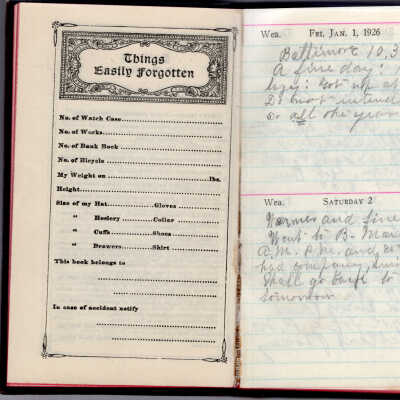 Things
Easily Forgotten
No. of Watch Case
No. of Works
No. of Bank Book
No. of Bicycle
My Weight on lbs.
Height
Size of my Hat Gloves
" Hosiery Collar
" Cuffs Shoes
" Drawers Shirt
This book belongs to
In case of accident notify
Wea. FRI. JAN. 1, 1926
Baltimore 10,3
A fine day:
lazy: Got up at
not intend
all one year
Wea. SATURDAY 2
Warmer and fine
Went to B.
A.M. P.M. and
had company
Shall go back to
tomorrow